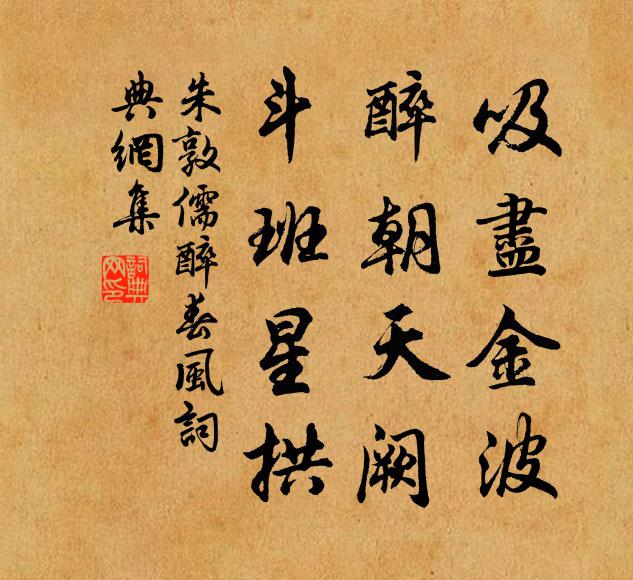 吸盡金波
醉朝天闕
斗班星拱
朱敦儒醉春風詞
典網集
詞典網印